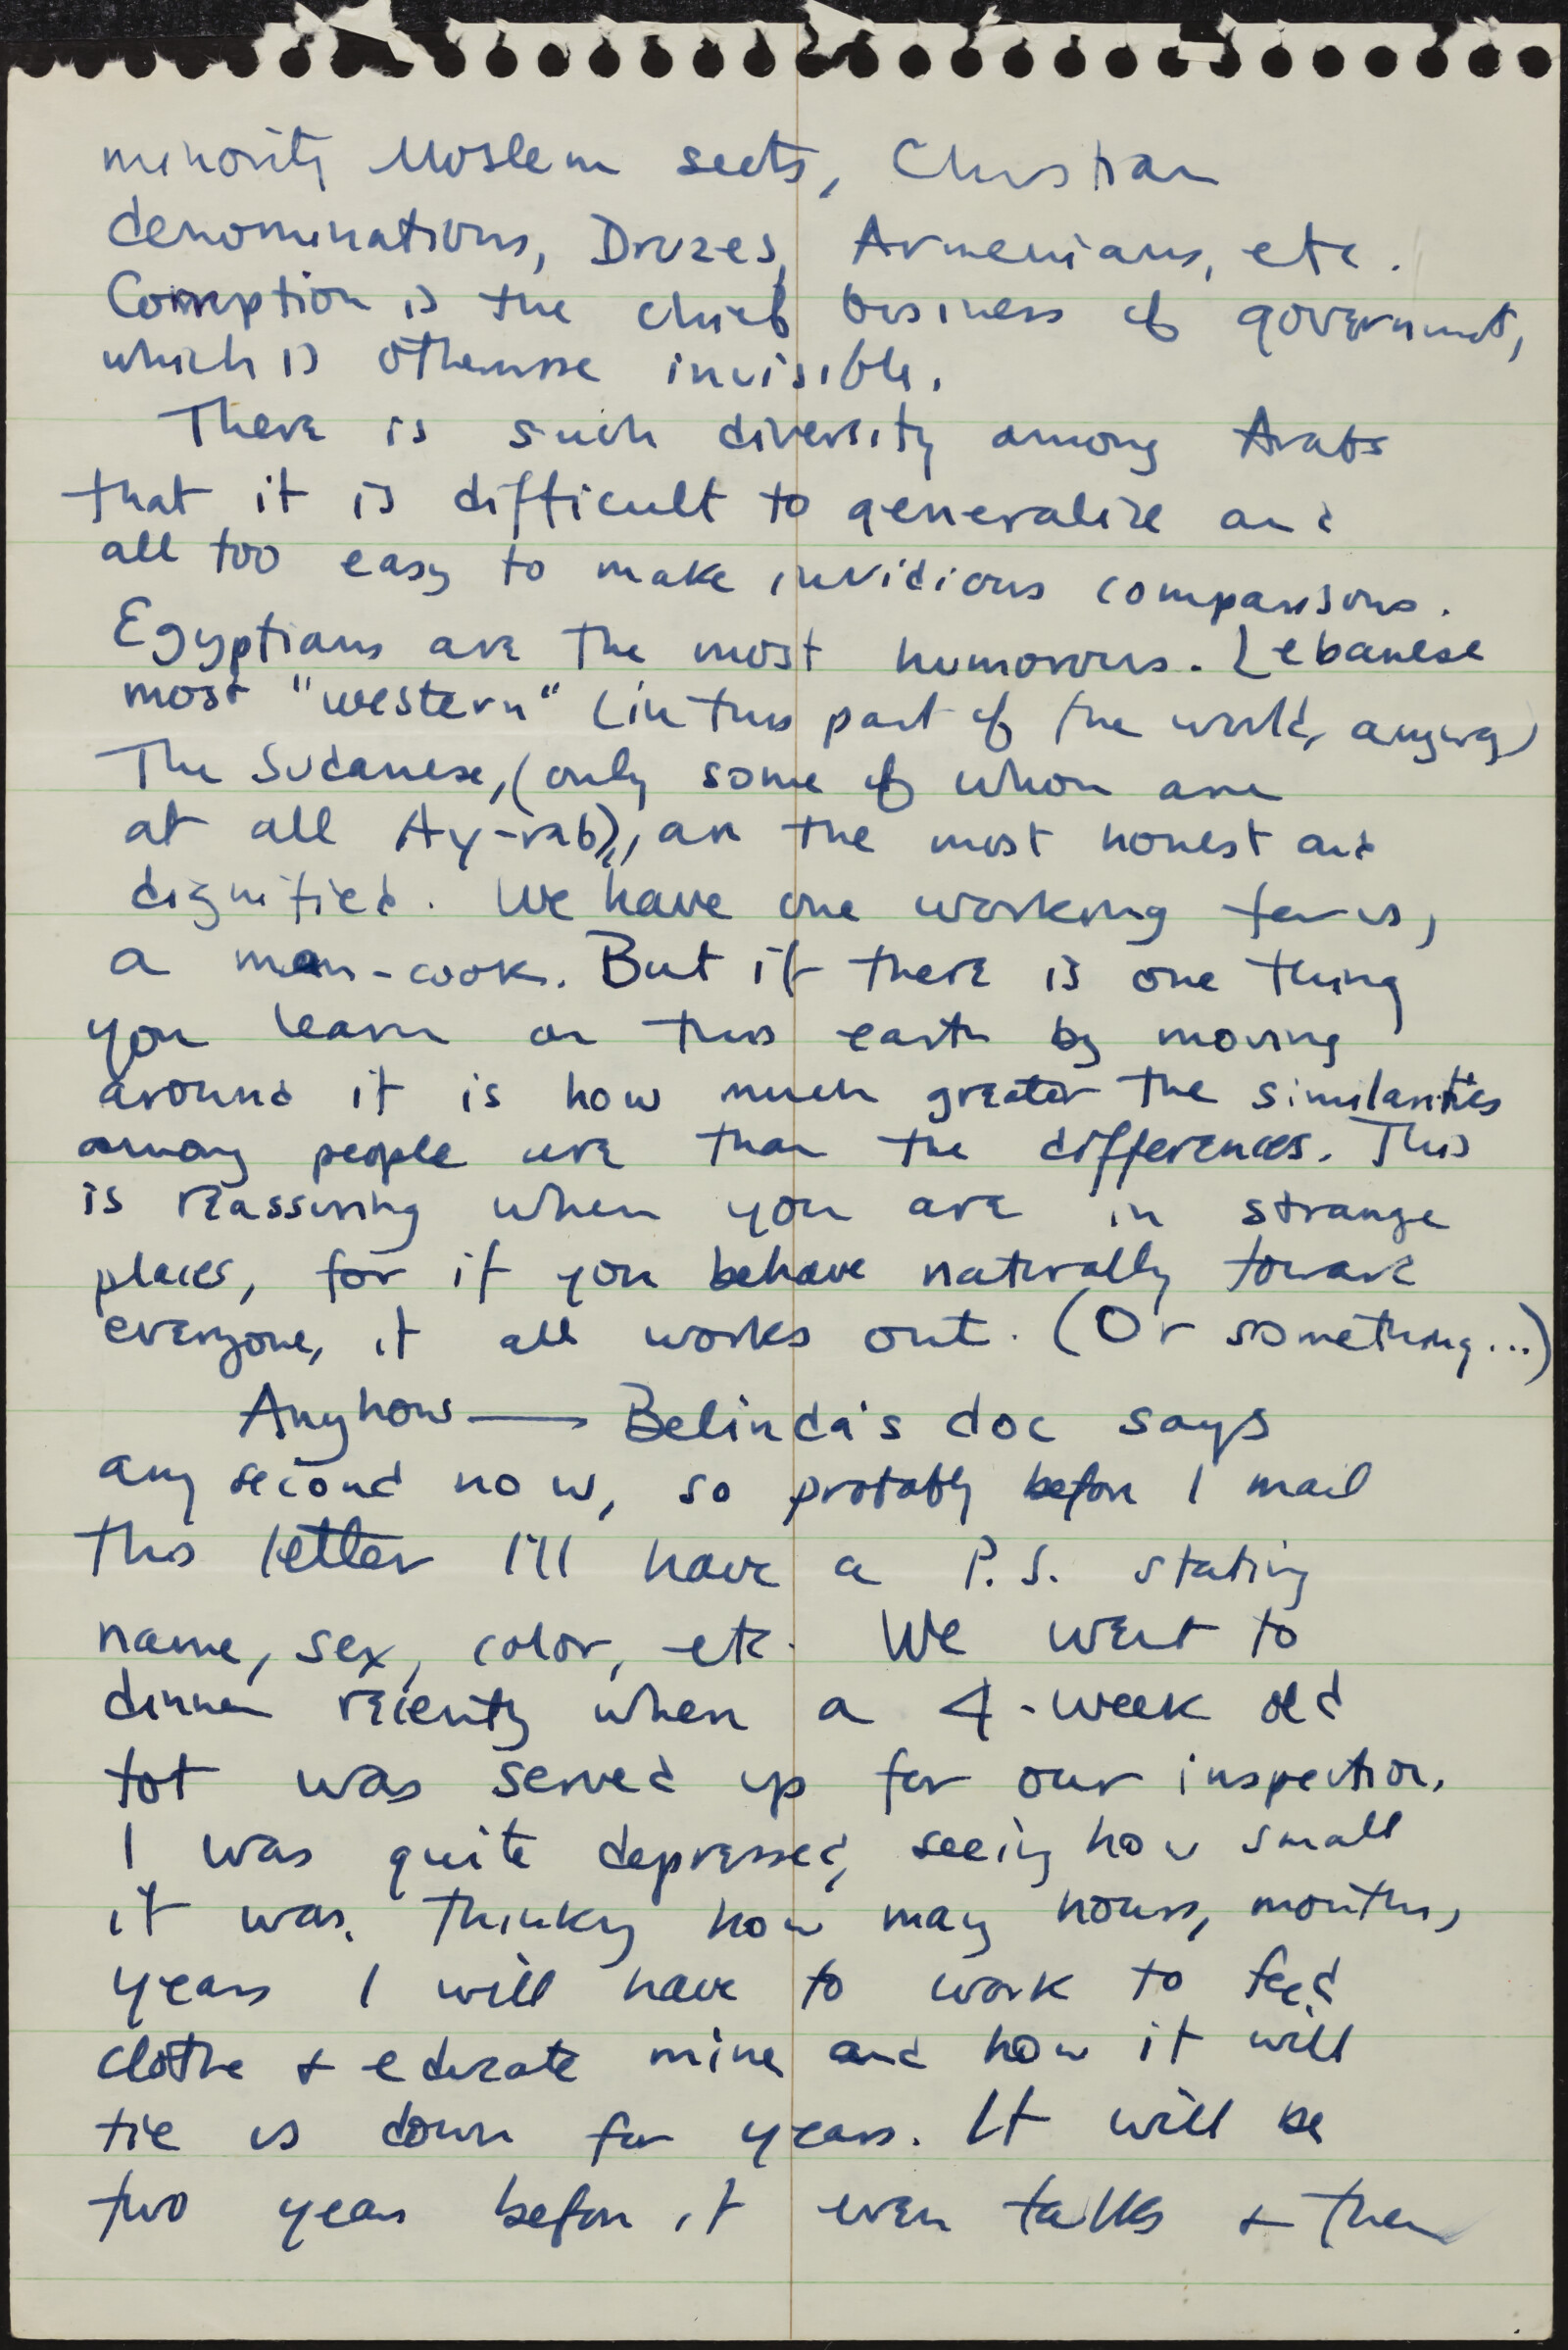 minority Moslem sects, Christian
denominations, Druzes, Armenians, etc.
Corruption is the chief business of government,
which is otherwise invisible.
There is such diversity among Arabs
that it is difficult to generalize and
all too easy to make invidious comparisons.
Egyptians are the most humorous. Lebanese
most "western" (in this part of the world, anyway)
The Sudanese, (only some of whom are
at all Ay-rab), are the most honest and
dignified. We have one working for us,
a man-cook. But if there is one thing
you learn on this earth by moving
around it is how much greater the similarities
among people are than the differences. This
is reassuring when you are in strange
places, for if you behave naturally toward
everyone, it all works out. (Or something...)
Anyhow — Belinda's doc says
any second now, so probably before I mail
this letter I'll have a P.S. stating
name, sex, color, etc. We went to
dinner recently when a 4-week old
tot was served up for our inspection.
I was quite depressed, seeing how small
it was, thinking how many hours, months,
years I will have to work to feed
clothe + educate mine and how it will
tie us down for years. It will be
two years before it even talks + then